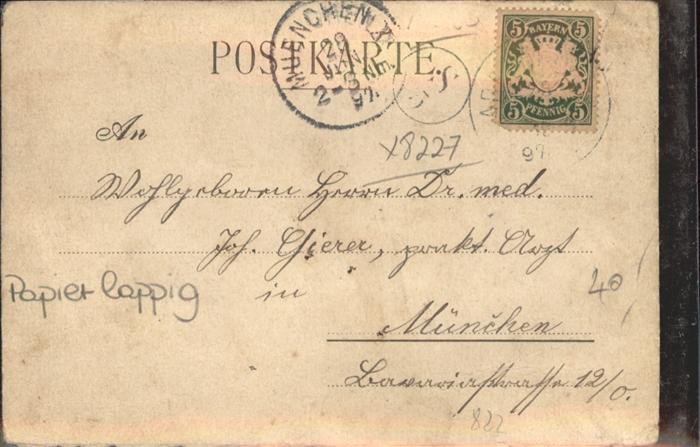 POSTKARTE.
MUENCHEN
29
JUN
97
5 BAYERN 5
5 PFENNIG 5
97
X8227
An
Wohlgeboren Herrn Dr. med.
Joh. Gierer, prakt. Arzt
Papier lappig
in
40
München
Bavariastrasse 12/0.
822